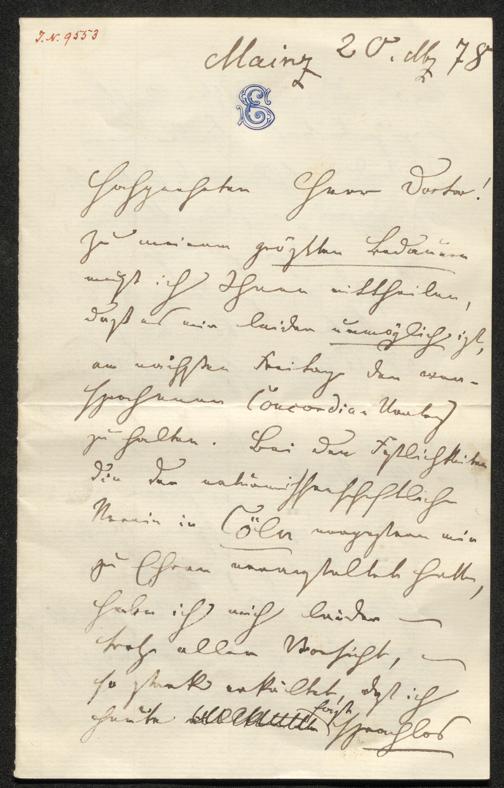 J. N. 9553
Mainz 20. Mz 78
Hochgeehrter Herr Doctor!
Zu meinem größten Bedauern
muß ich Ihnen mittheilen,
daß es mir leider unmöglich ist,
am nächsten Freitag den ver-
sprochenen Concordia-Vortrag
zu halten. Bei den Festlichkeiten
die der naturwissenschaftliche
Verein in Cöln vorgestern mir
zu Ehren veranstaltet hatte,
habe ich mich leider —
trotz aller Vorsicht, —
so stark erkältet, daß ich
heute fast sprachlos